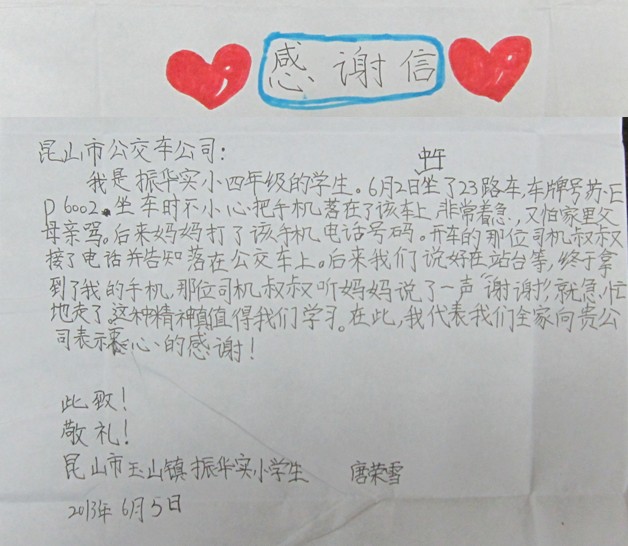 感谢信
昆山市公交车公司：
我是振华实小四年级的学生。6月2日中午坐了23路车，车牌号苏·E
D6002。坐车时不小心把手机落在了该车上，非常着急，又怕家里父
母亲骂。后来妈妈打了该手机电话号码。开车的那位司机叔叔
接了电话并告知落在公交车上。后来我们说好在站台等，终于拿
到了我的手机，那位司机叔叔听妈妈说了一声“谢谢！”就急忙
地走了，这种精神真值得我们学习。在此，我代表我们全家向贵公
司表示衷心的感谢！
此致！
敬礼！
昆山市玉山镇振华实小学生 唐荣雪
2013年6月5日